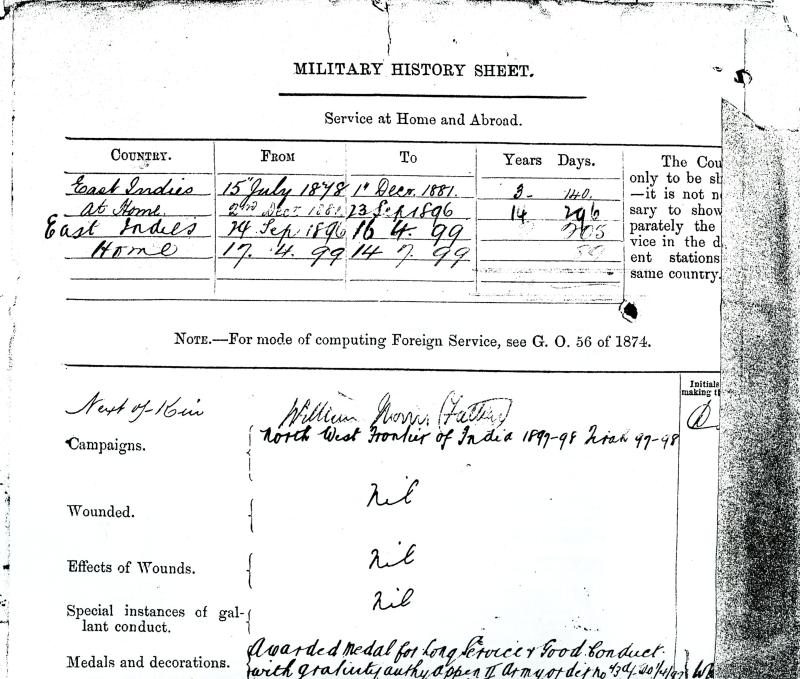 MILITARY HISTORY SHEET.
Service at Home and Abroad.
COUNTRY. FROM TO Years Days.
East Indies 15" July 1878 1" Decr. 1881. 3- 140.
At Home 2nd Decr 1881 23 Sep 1896 14 296
East Indies 24 Sep 1896 16 4. 99 205
Home 17. 4. 99 14 7. 99
The Cou
only to be sh
—it is not n
sary to show
parately the
vice in the d
ent stations
same country.
NOTE.—For mode of computing Foreign Service, see G. O. 56 of 1874.
Initials
making th
Next of Kin William Norris (Father)
Campaigns. North West Frontier of India 1897-98 Tirah 97-98
Wounded. Nil
Effects of Wounds. Nil
Special instances of gal- Nil
lant conduct.
Medals and decorations. Awarded Medal for Long Service & Good Conduct
with gratuity authy Appen II Army order no